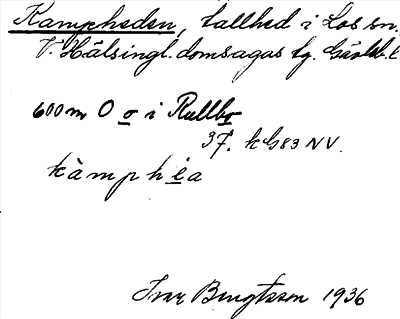 Kampheden, tallhed i Los sn.
V. Hälsingl. domsagas tg. Gävleb. l
600 m O o i Rullbo
37. kb 83 NV.
kàmphéa
Ivar Bengtsson 1936